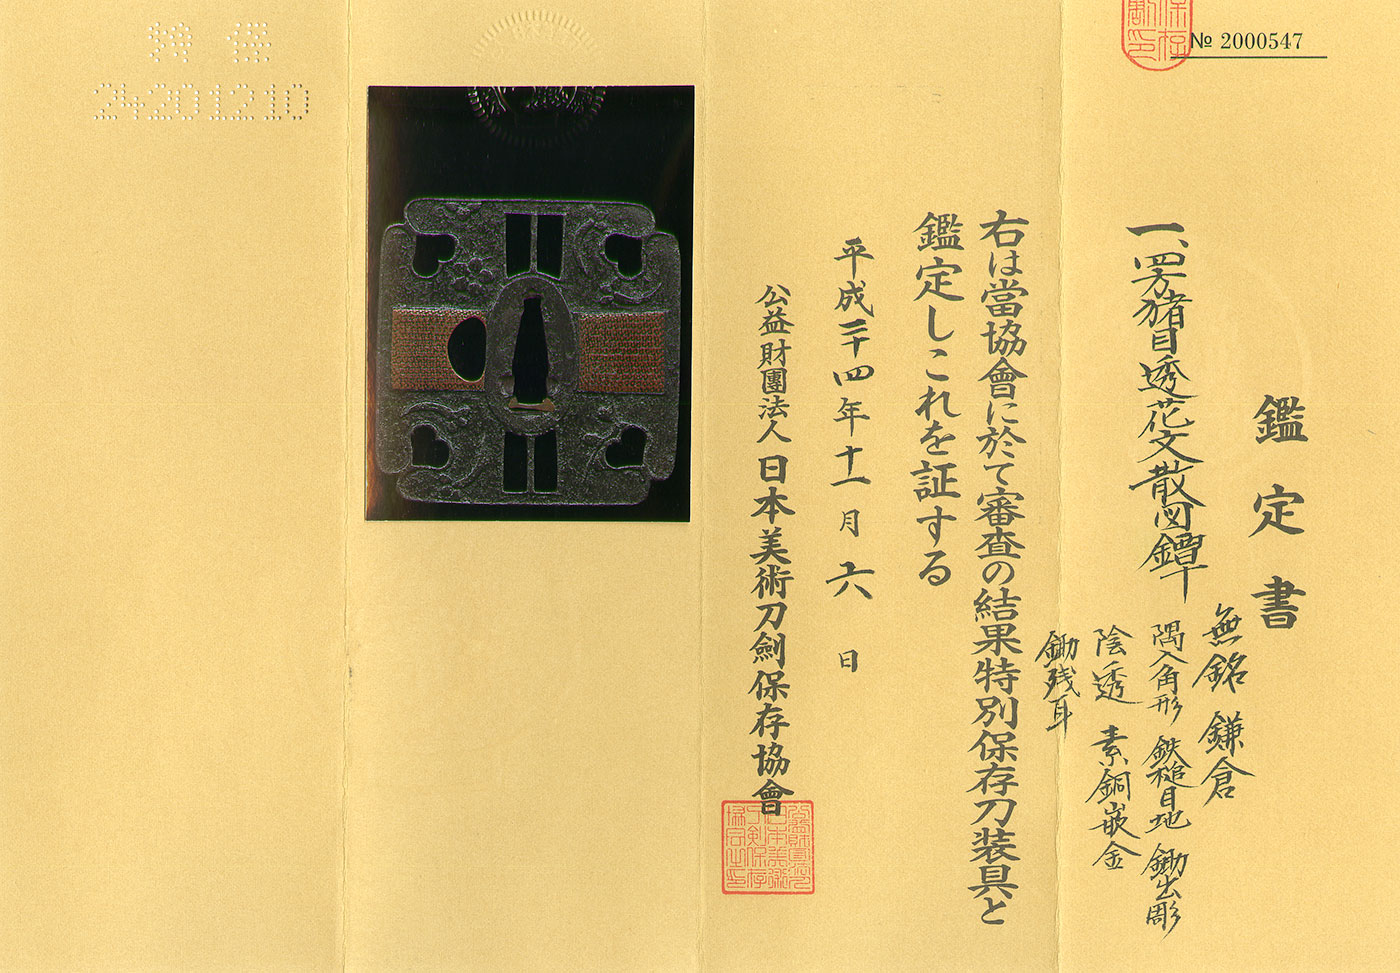 № 2000547
鑑定書
一、四方猪目透花文散図鐔
無銘 鎌倉
隅入角形 鉄槌目地 鋤出彫
陰透 素銅嵌金
鋤残耳
右は當協會に於て審査の結果特別保存刀装具と
鑑定しこれを証する
平成二十四年十一月六日
公益財團法人日本美術刀劍保存協會
特保
24201210